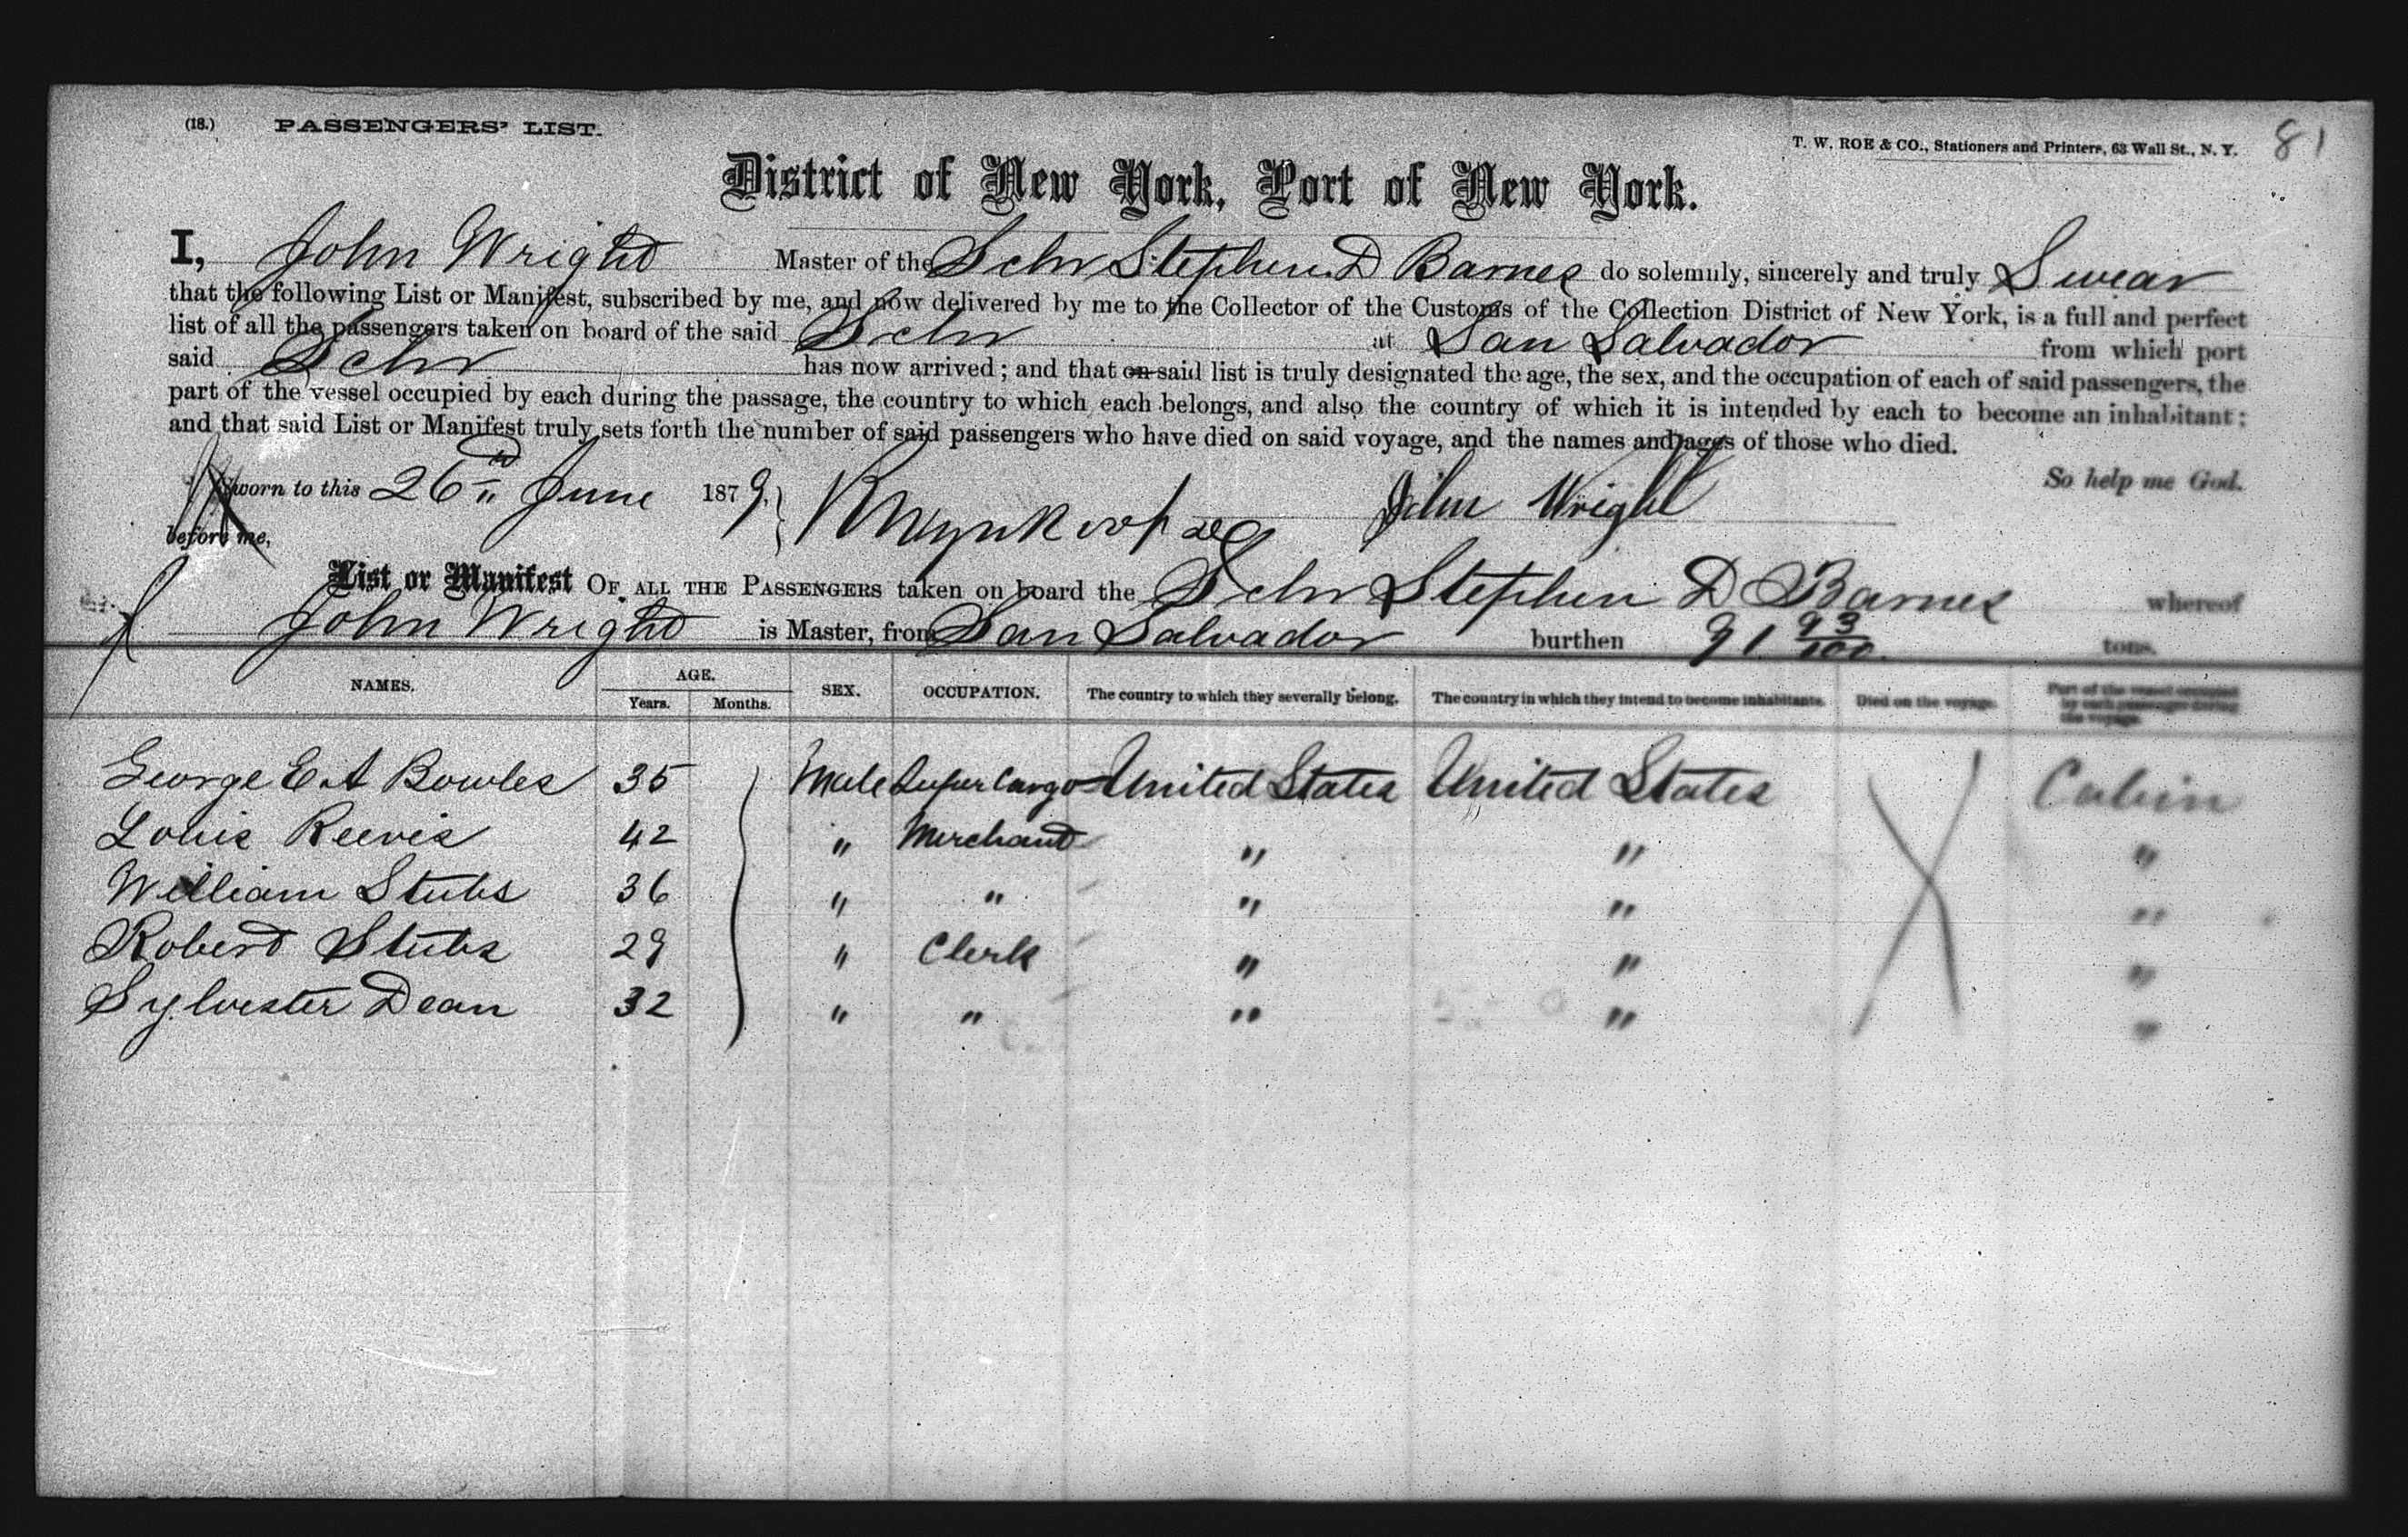 (18.) PASSENGERS' LIST.
T. W. ROE & CO., Stationers and Printers, 63 Wall St., N. Y. 81
District of New York, Port of New York.
I, John Wright Master of the Schr Stephen D Barnes do solemnly, sincerely and truly Swear
that the following List or Manifest, subscribed by me, and now delivered by me to the Collector of the Customs of the Collection District of New York, is a full and perfect
list of all the passengers taken on board of the said Schr at San Salvador from which port
said Schr has now arrived; and that on said list is truly designated the age, the sex, and the occupation of each of said passengers, the
part of the vessel occupied by each during the passage, the country to which each belongs, and also the country of which it is intended by each to become an inhabitant;
and that said List or Manifest truly sets forth the number of said passengers who have died on said voyage, and the names and ages of those who died.
So help me God.
Sworn to this 26 June 1879. John Wright
before me,
List or Manifest OF ALL THE PASSENGERS taken on board the Schr Stephen D Barnes whereof
John Wright is Master, from San Salvador burthen 91 93/100 tons.
NAMES. AGE. Years. Months. SEX. OCCUPATION. The country to which they severally belong. The country in which they intend to become inhabitants. Died on the voyage. Part of the vessel occupied by each passenger during the voyage.
George E A Bowles 35 Male Super Cargo United States United States Cabin
Louis Reevis 42 " Merchant " " "
William Stubs 36 " " " " "
Robert Stubs 29 " Clerk " " "
Sylvester Dean 32 " " " " "